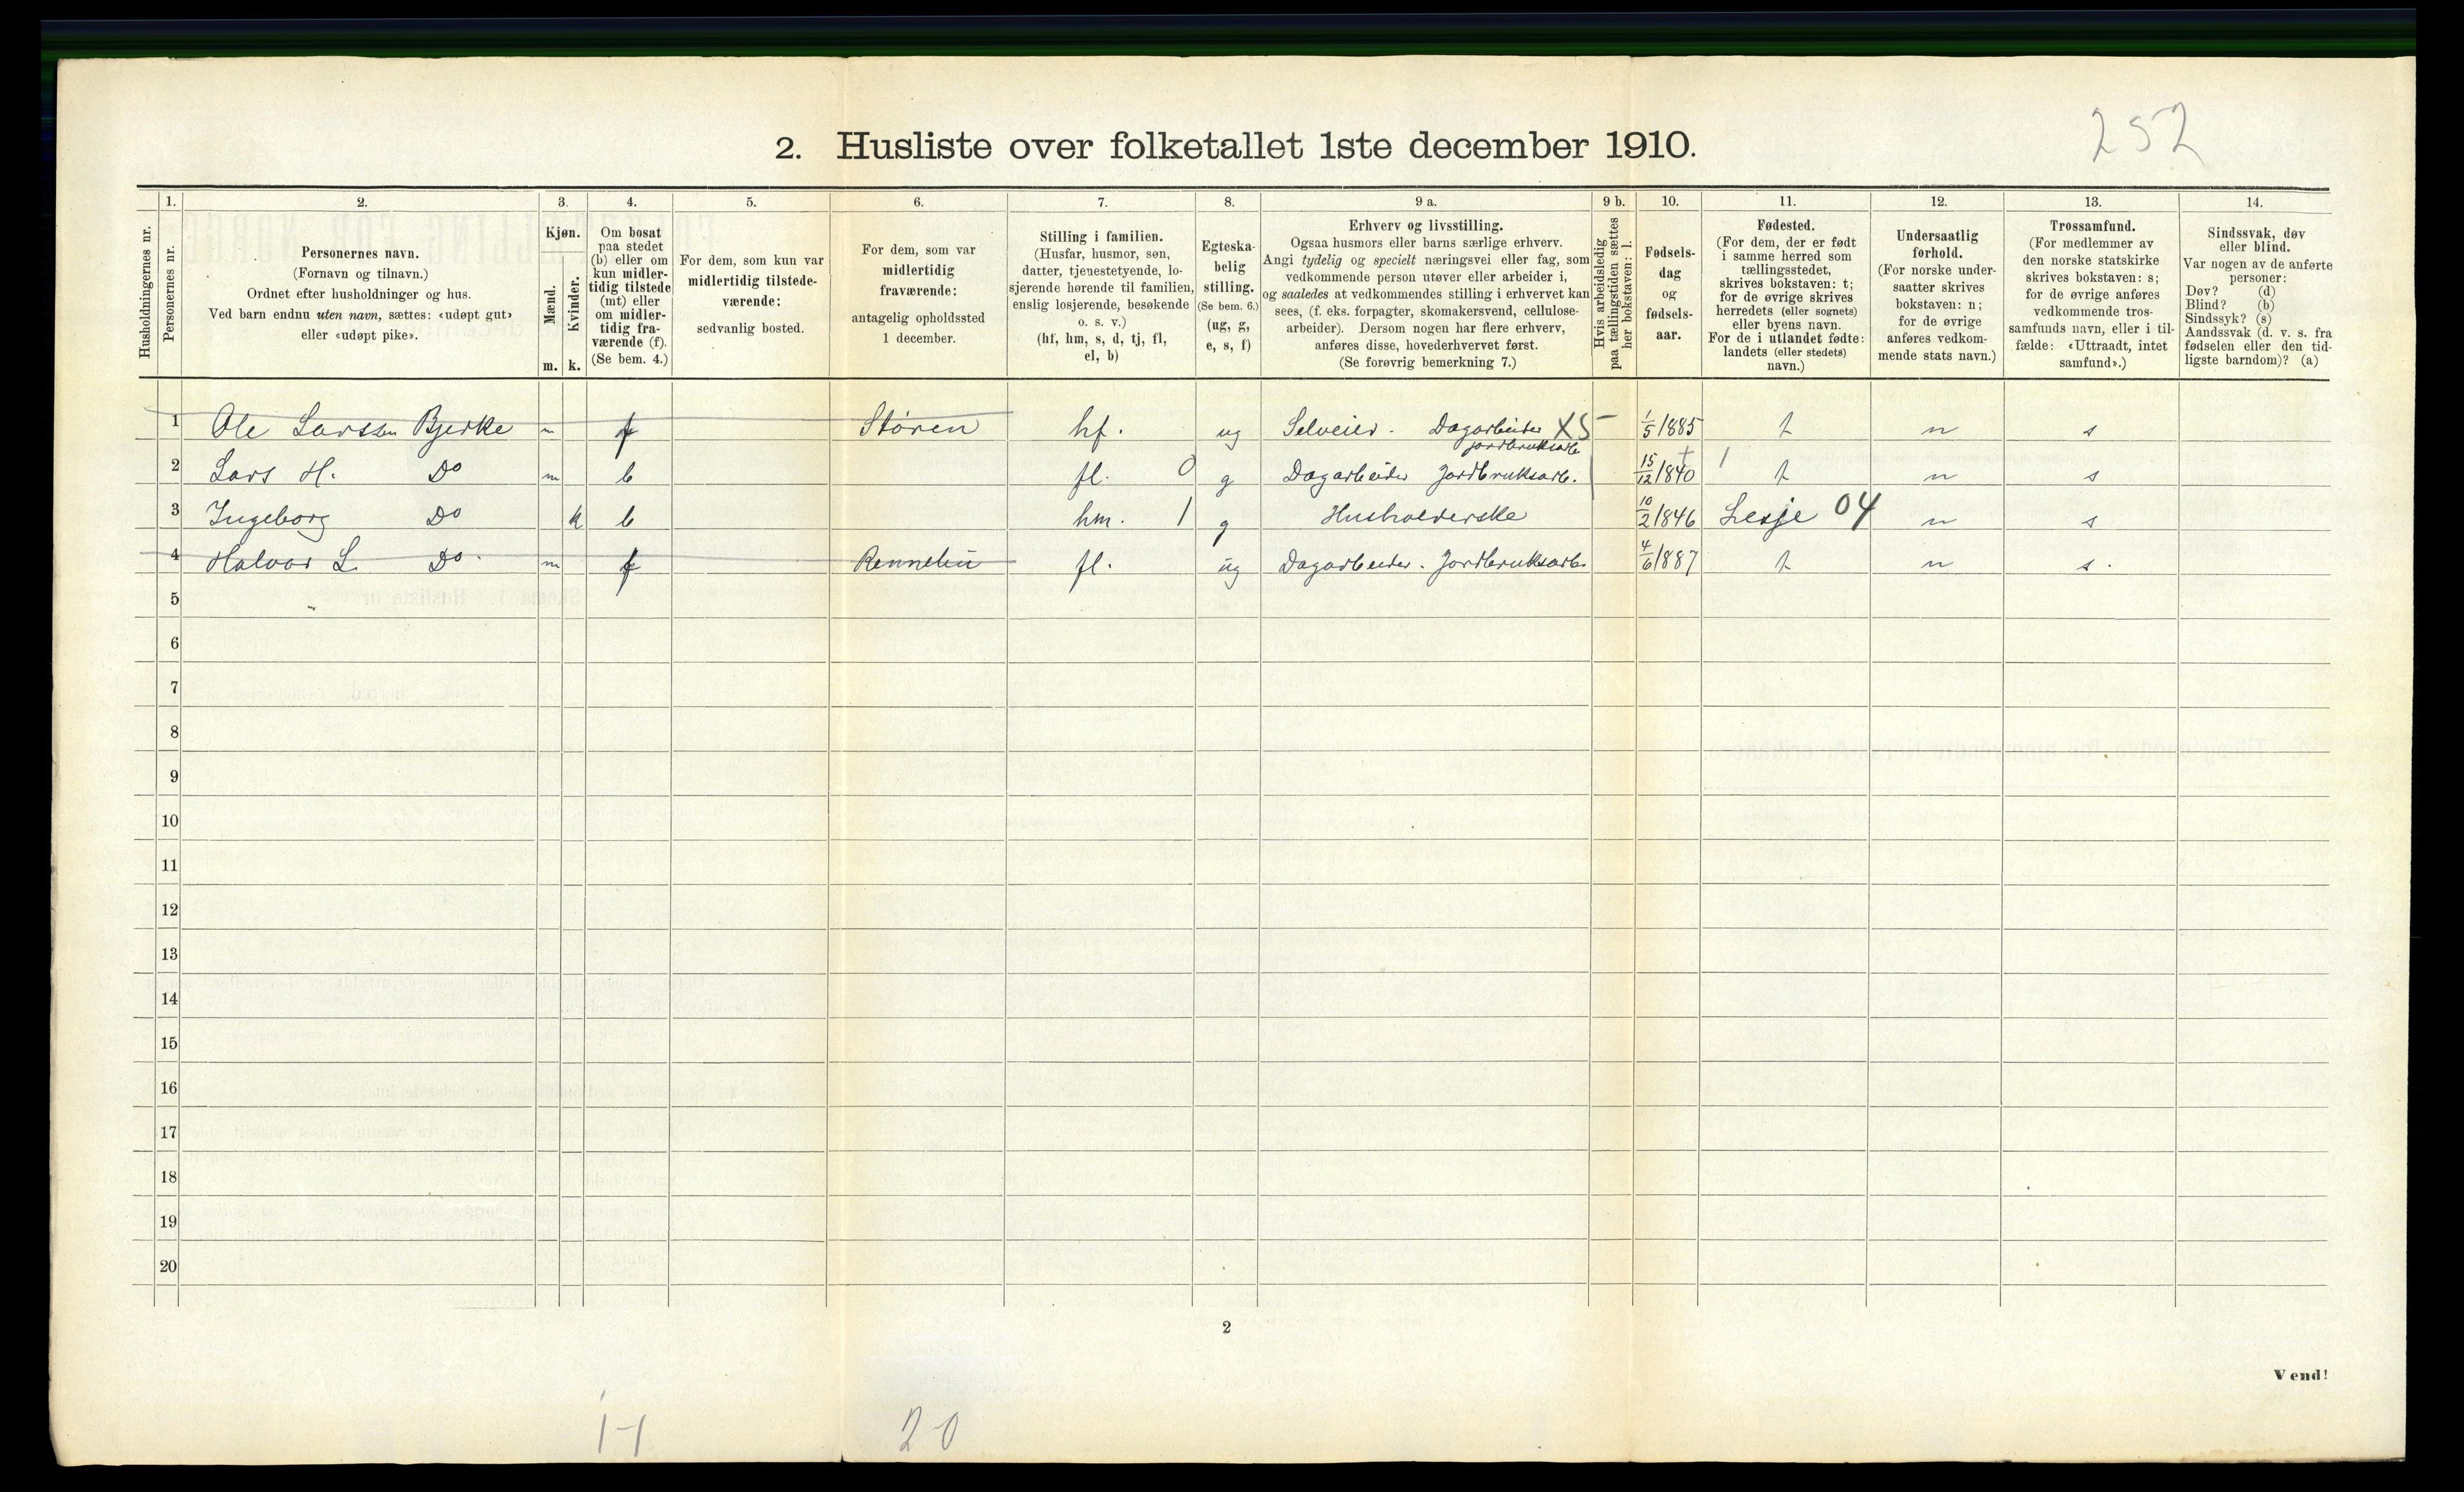 252
2. Husliste over folketallet 1ste december 1910.
Husholdningernes nr.
1.
Personernes nr.
2.
Personernes navn.
(Fornavn og tilnavn.)
Ordnet efter husholdninger og hus.
Ved barn endnu uten navn, sættes: «udøpt gut»
eller «udøpt pike».
3.
Kjøn.
Mænd.
Kvinder.
m. k.
4.
Om bosat
paa stedet
(b) eller om
kun midler-
tidig tilstede
(mt) eller
om midler-
tidig fra-
værende (f).
(Se bem. 4.)
5.
For dem, som kun var
midlertidig tilstede-
værende:
sedvanlig bosted.
6.
For dem, som var
midlertidig
fraværende:
antagelig opholdssted
1 december.
7.
Stilling i familien.
(Husfar, husmor, søn,
datter, tjenestetyende, lo-
sjerende hørende til familien,
enslig losjerende, besøkende
o. s. v.)
(hf, hm, s, d, tj, fl,
el, b)
8.
Egteska-
belig
stilling.
(Se bem. 6.)
(ug, g,
e, s, f)
9 a.
Erhverv og livsstilling.
Ogsaa husmors eller barns særlige erhverv.
Angi tydelig og specielt næringsvei eller fag, som
vedkommende person utøver eller arbeider i,
og saaledes at vedkommendes stilling i erhvervet kan
sees, (f. eks. forpagter, skomakersvend, cellulose-
arbeider). Dersom nogen har flere erhverv,
anføres disse, hovederhvervet først.
(Se forøvrig bemerkning 7.)
9 b.
Hvis arbeidsledig
paa tællingstiden sættes
her bokstaven: l.
10.
Fødsels-
dag
og
fødsels-
aar.
11.
Fødested.
(For dem, der er født
i samme herred som
tællingsstedet,
skrives bokstaven: t;
for de øvrige skrives
herredets (eller sognets)
eller byens navn.
For de i utlandet fødte:
landets (eller stedets)
navn.)
12.
Undersaatlig
forhold.
(For norske under-
saatter skrives
bokstaven: n;
for de øvrige
anføres vedkom-
mende stats navn.)
13.
Trossamfund.
(For medlemmer av
den norske statskirke
skrives bokstaven: s;
for de øvrige anføres
vedkommende tros-
samfunds navn, eller i til-
fælde: «Uttraadt, intet
samfund».)
14.
Sindssvak, døv
eller blind.
Var nogen av de anførte
personer:
Døv? (d)
Blind? (b)
Sindssyk? (s)
Aandssvak (d. v. s. fra
fødselen eller den tid-
ligste barndom)? (a)
1 Ole Larssen Bjerke m f Støren hf. ug Selveier - Dagarbeider X5 - 1/5 1885 t n s
jordbruksarb
2 Lars H. Do m b fl. 0 g Dagarbeider Jordbruksarb. 15/12 1840 + 1 t n s
3 Ingeborg Do k b hm. 1 g Husholderske 10/2 1846 Lesje 04 n s
4 Halvor L. Do. m f Rennebu fl. ug Dagarbeider. Jordbruksarb. 4/6 1887 t n s.
5
6
7
8
9
10
11
12
13
14
15
16
17
18
19
20
2
Vend!
1-1 2-0